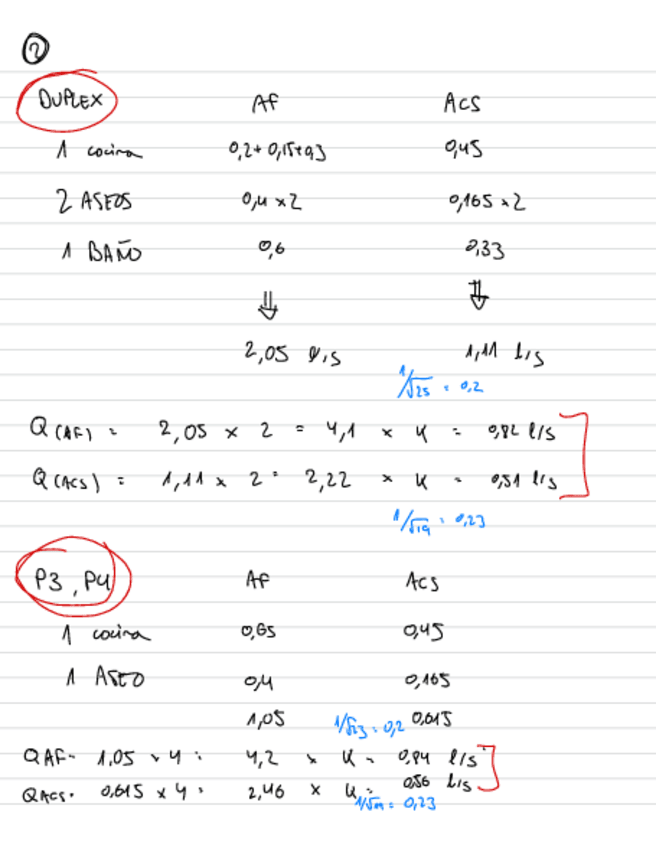 2
DUPLEX AF ACS
1 cocina 0,2+0,15+0,3 0,45
2 ASEOS 0,4 x 2 0,165 x 2
1 BAÑO 0,6 0,33
⇓ ⇓
2,05 l/s 1,11 l/s
1/√25 = 0,2
Q(AF) = 2,05 x 2 = 4,1 x K = 0,82 l/s
Q(ACS) = 1,11 x 2 = 2,22 x K = 0,51 l/s
1/√19 = 0,23
P3, P4 AF ACS
1 cocina 0,65 0,45
1 ASEO 0,4 0,165
1,05 1/√23 = 0,2 0,615
QAF = 1,05 x 4 = 4,2 x K = 0,84 l/s
QACS = 0,615 x 4 = 2,46 x K = 0,56 l/s
1/√19 = 0,23